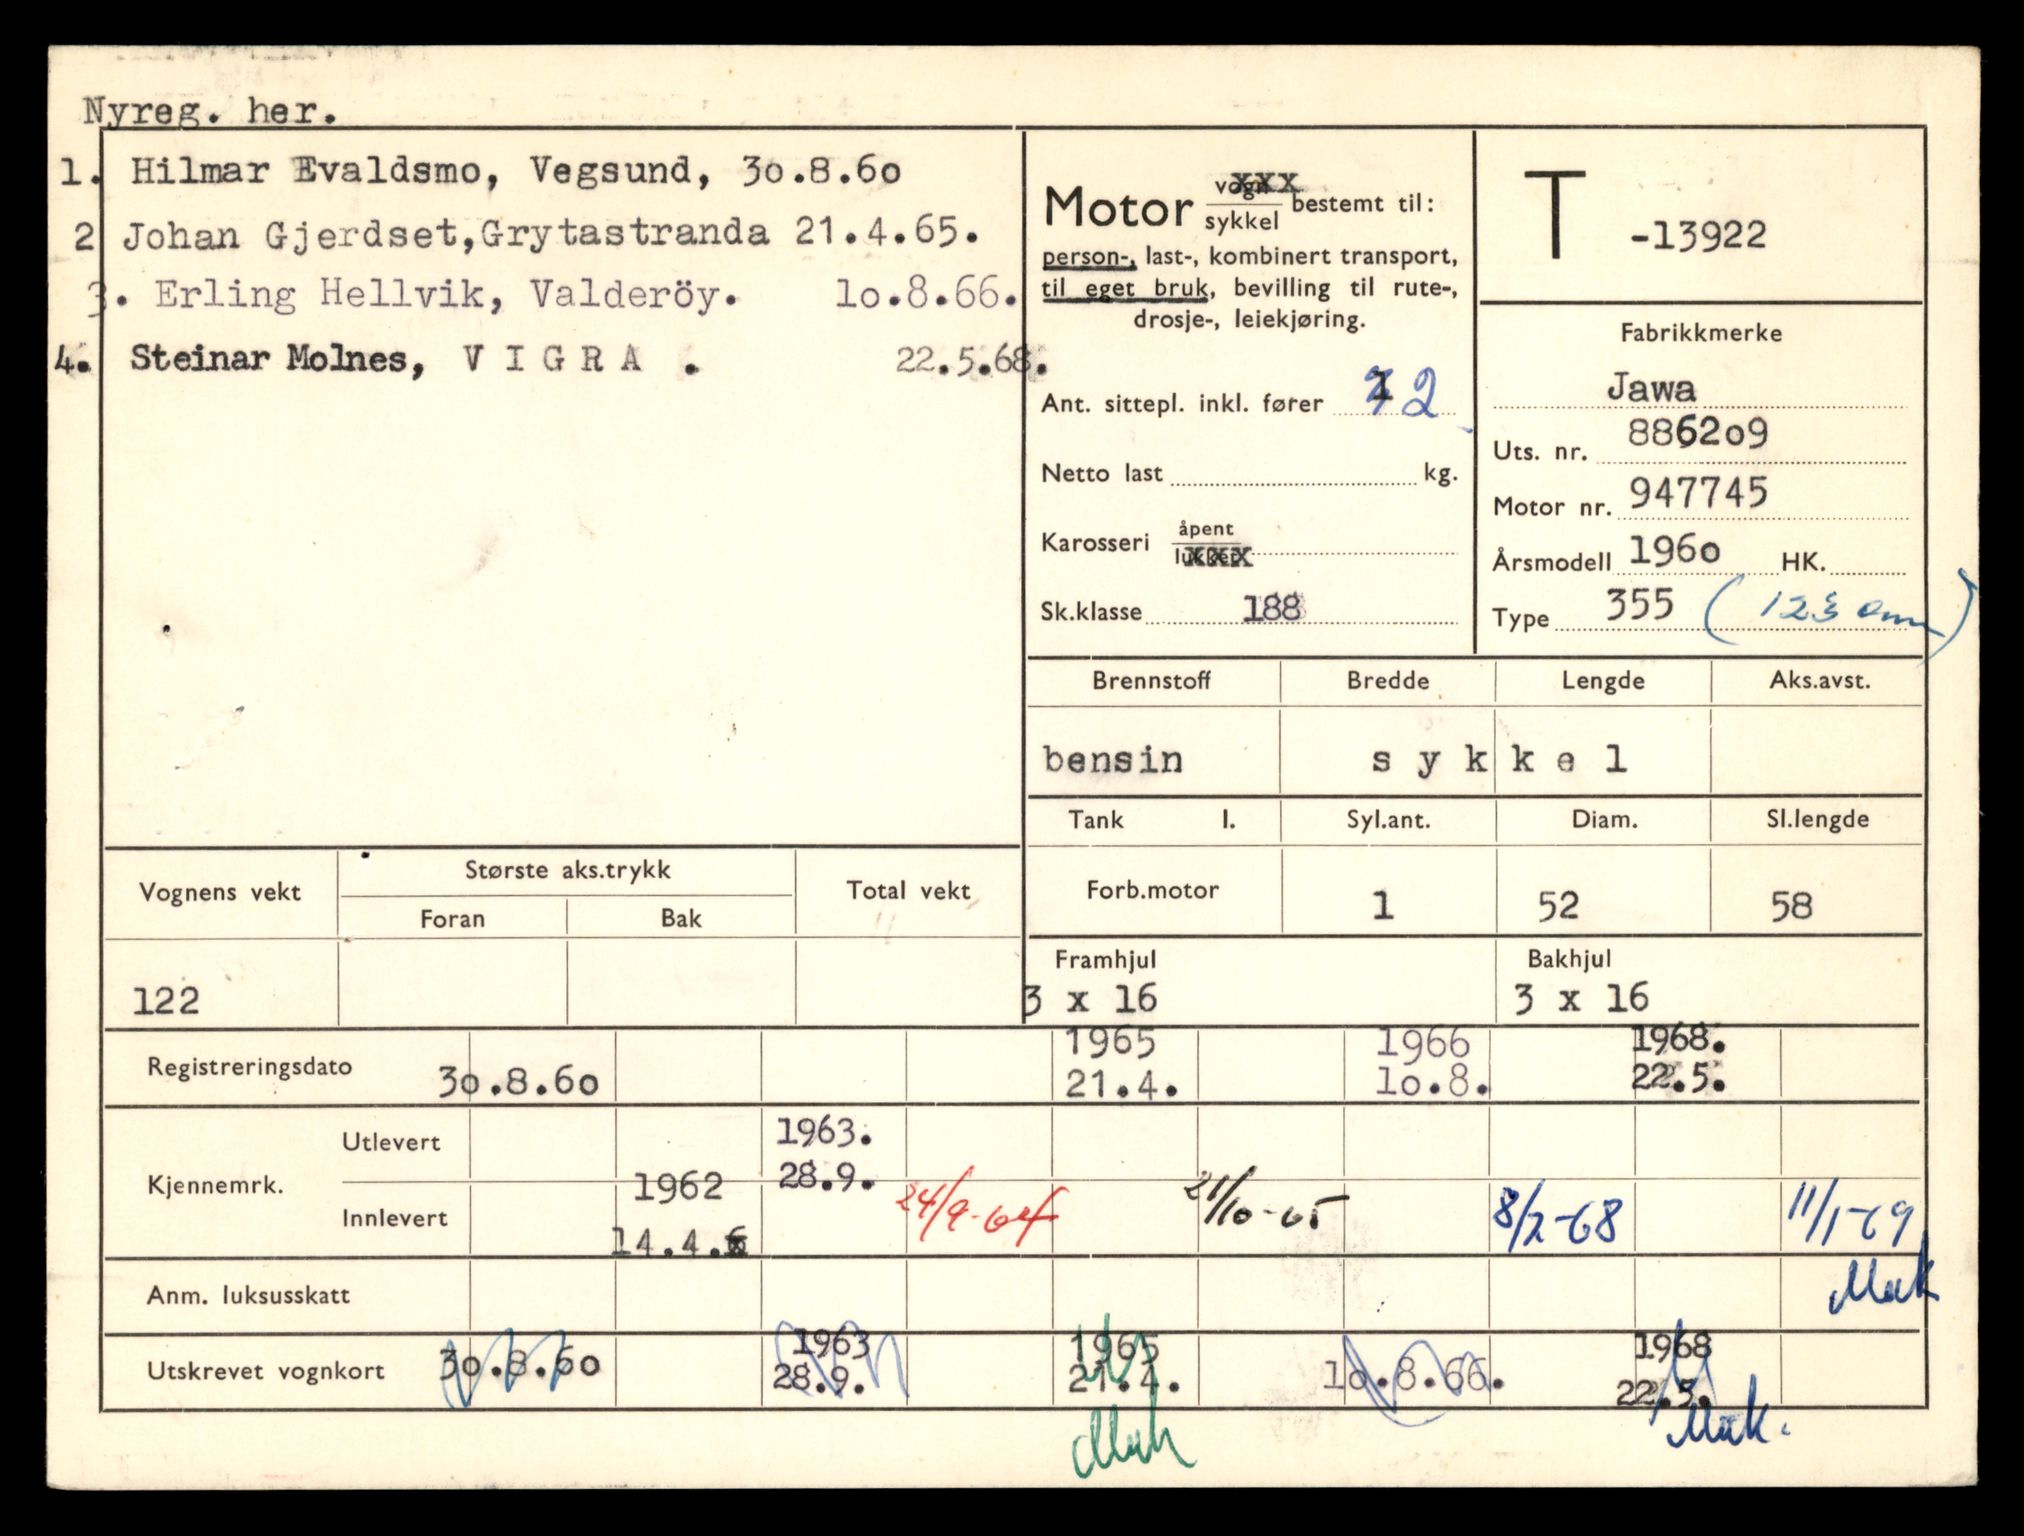 Nyreg. her.
1. Hilmar Evaldsmo, Vegsund, 3o.8.6o
2 Johan Gjerdset,Grytastranda 21.4.65.
3. Erling Hellvik, Valderöy. 1o.8.66.
4. Steinar Molnes, V I G R A . 22.5.68.
Motor vogn xxx
sykkel bestemt til:
person-, last-, kombinert transport,
til eget bruk, bevilling til rute-,
drosje-, leiekjøring.
Ant. sittepl. inkl. fører 2
Netto last kg.
Karosseri åpent
lukket xxxx
Sk.klasse 188
T -13922
Fabrikkmerke
Jawa
Uts. nr. 8862o9
Motor nr. 947745
Årsmodell 196o HK.
Type 355
Brennstoff Bredde Lengde Aks.avst.
bensin s y k k e l
Tank l. Syl.ant. Diam. Sl.lengde
Forb.motor 1 52 58
Framhjul Bakhjul
3 x 16 3 x 16
Vognens vekt Største aks.trykk Total vekt
Foran Bak
122
Registreringsdato 3o.8.6o 1965 21.4. 1966 1o.8. 1968. 22.5.
Kjennemrk.
Utlevert 1963. 28.9.
Innlevert 1962 14.4. 24/9-64 21/10-65 8/2-68 11/1-69
Anm. luksusskatt
Utskrevet vognkort 3o.8.6o 1963 28.9. 1965 21.4. 1o.8.66. 1968 22.5.